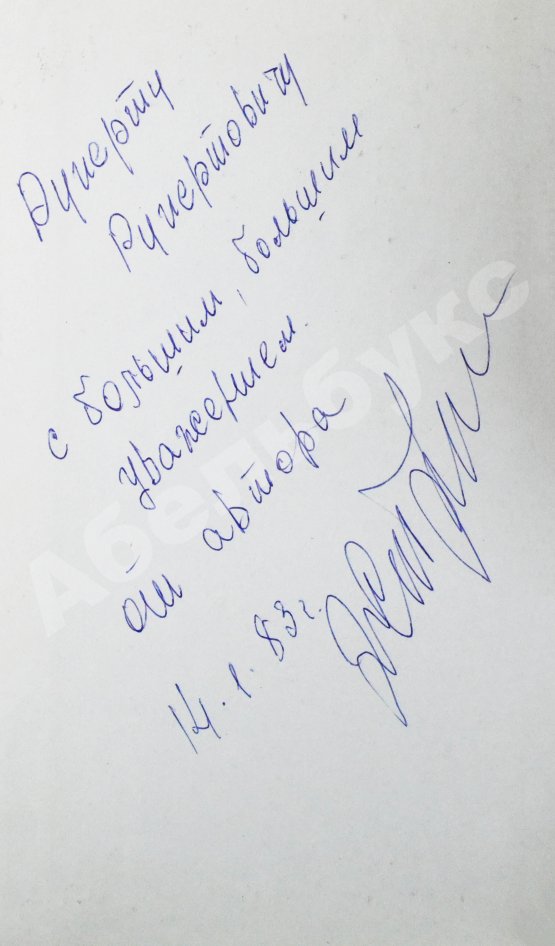 Руперту
Рупертовичу
с большим, большим
уважением.
от автора
14.I.83г.
Абельбукс